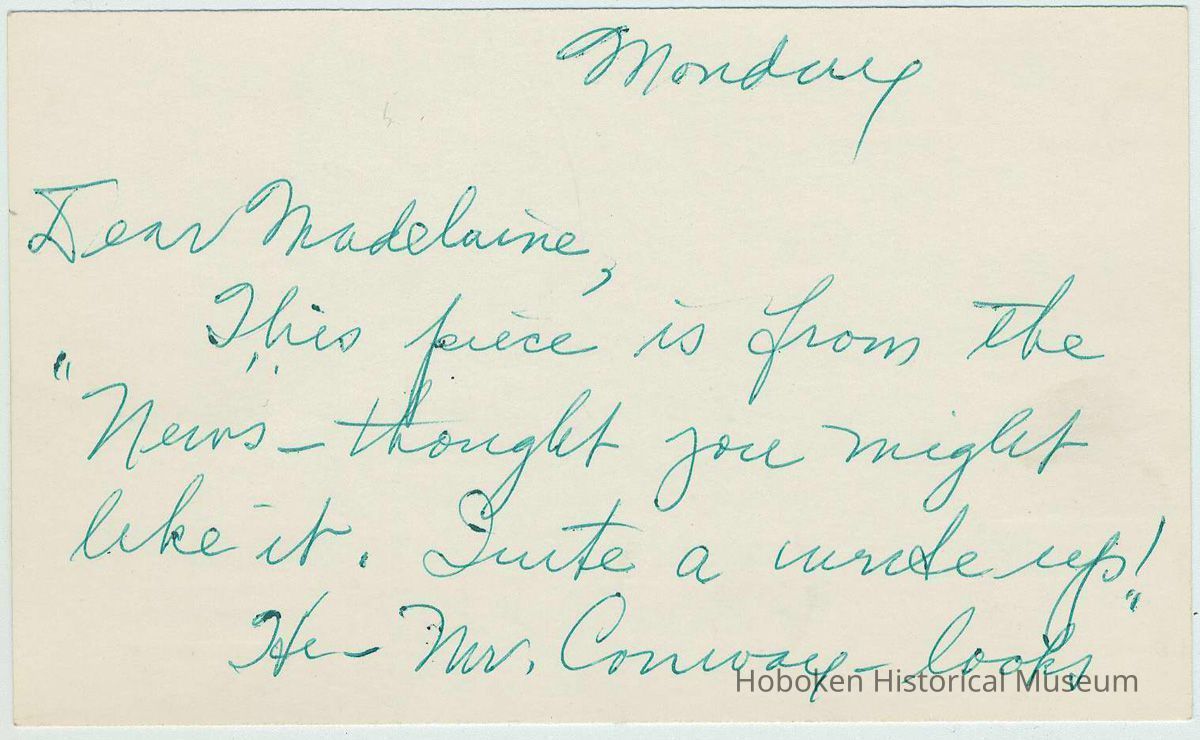 Monday
Dear Madelaine,
This piece is from the
"News - thought you might
like it. Quite a write up!"
He - Mr. Conway - looks
Hoboken Historical Museum